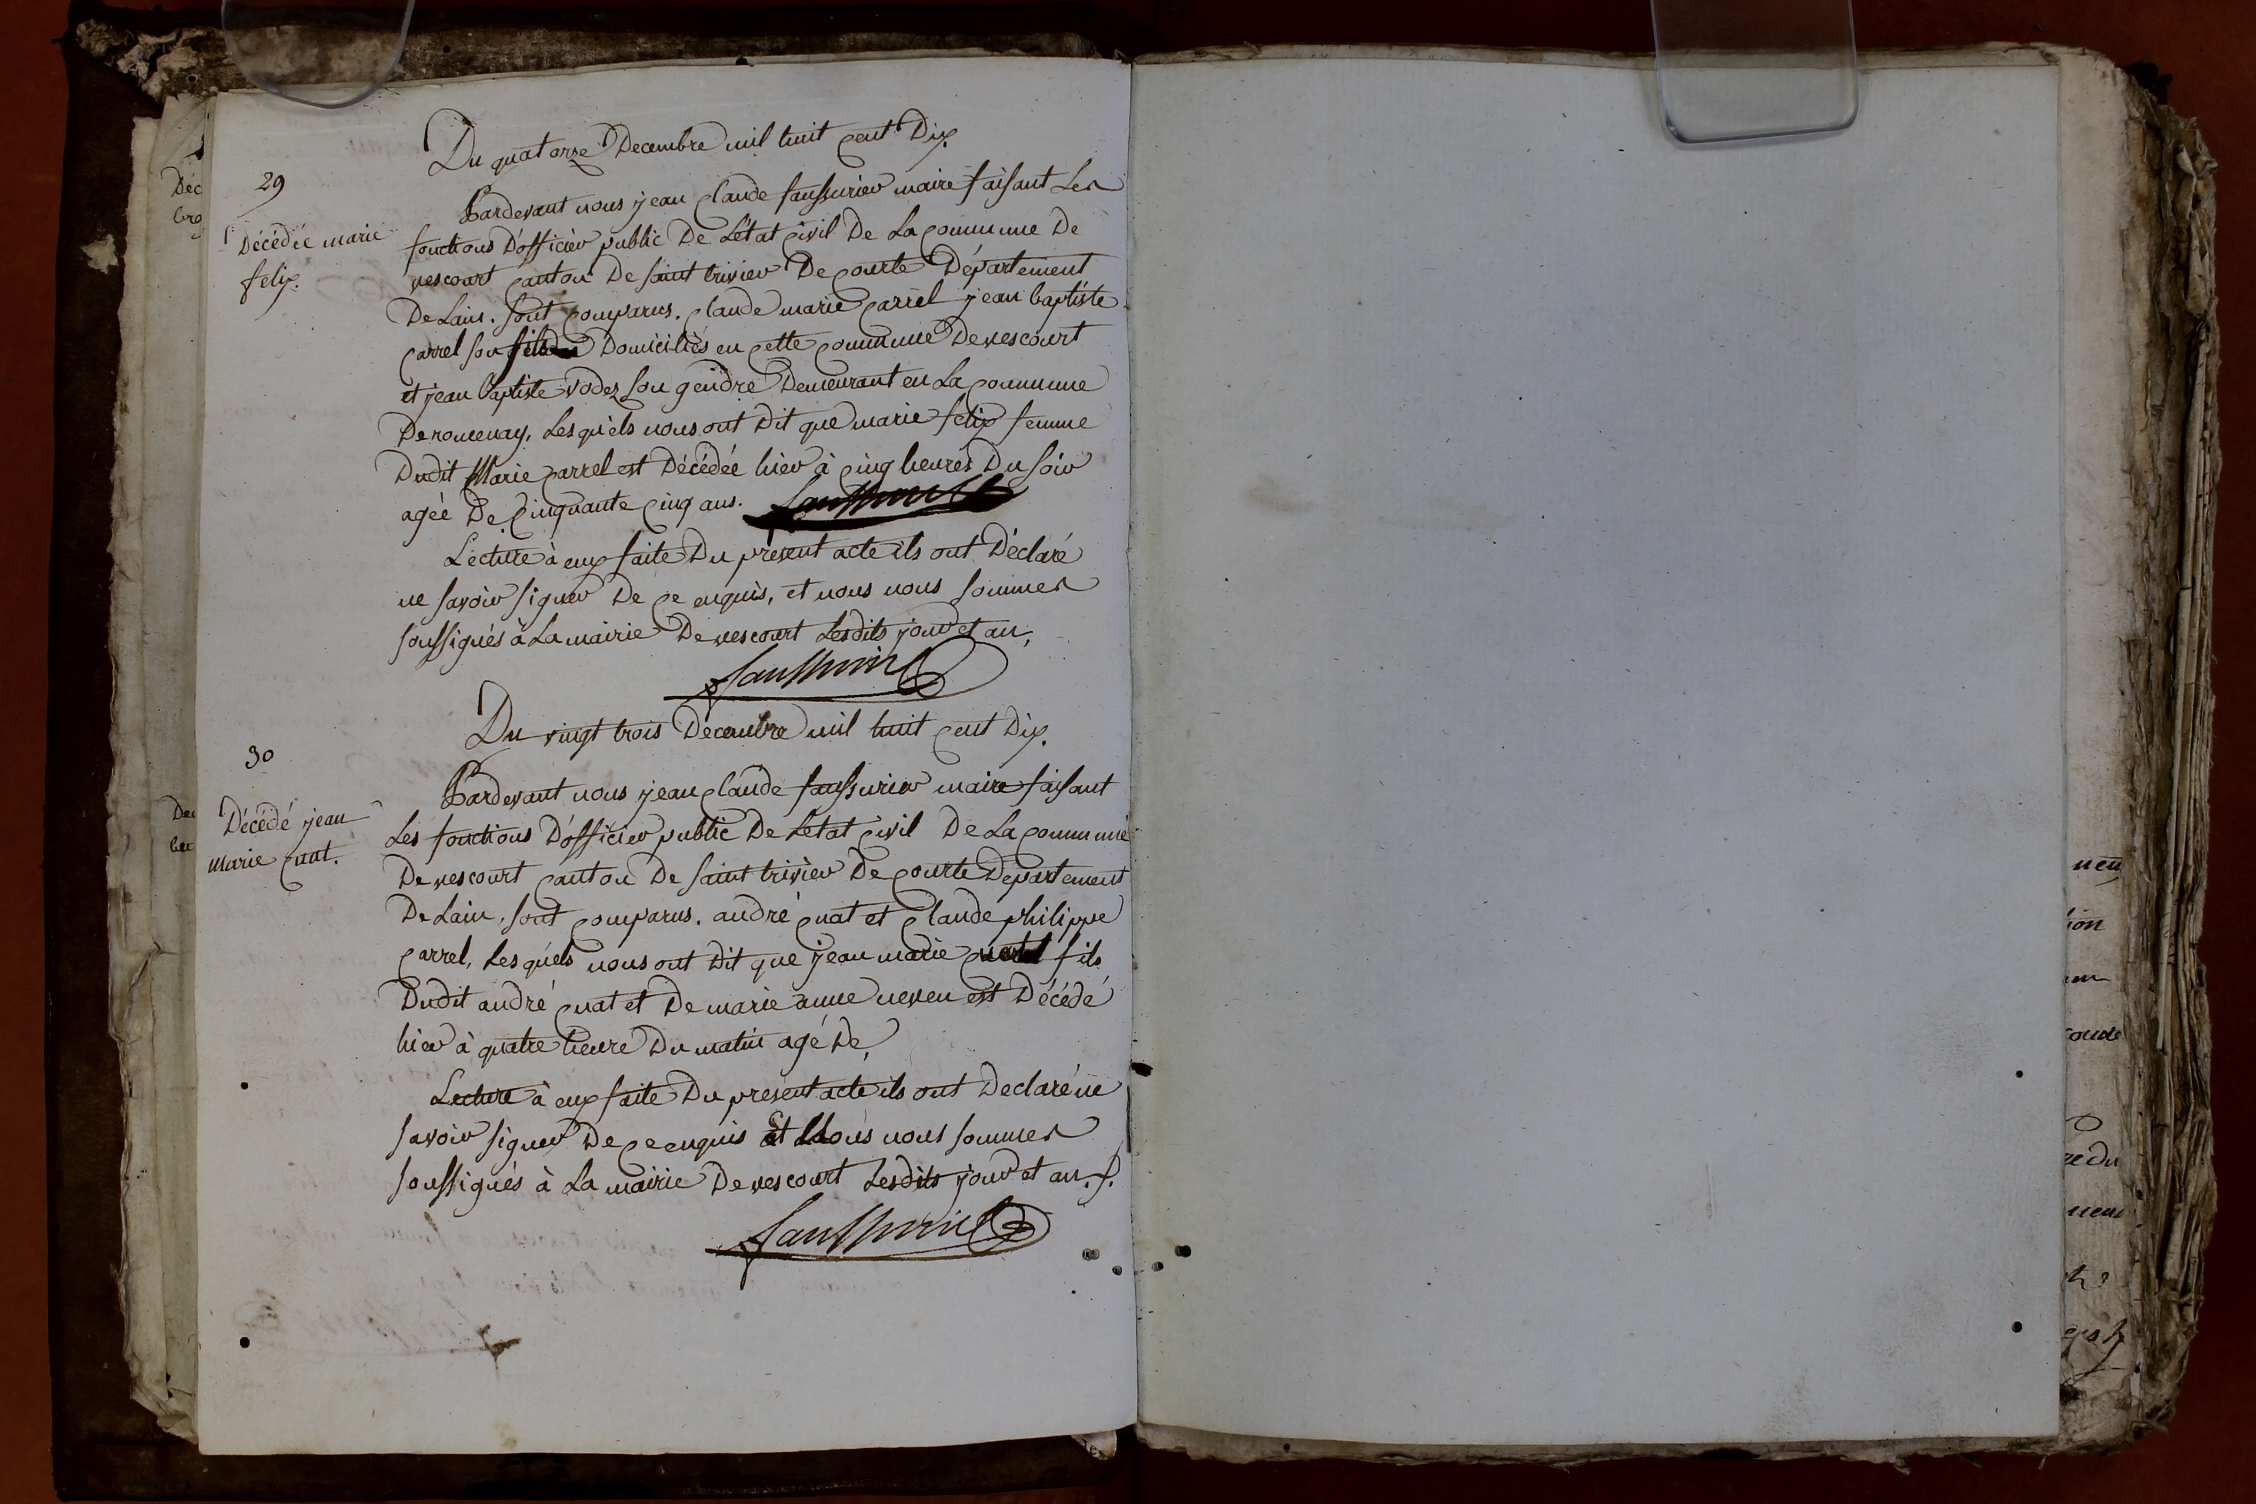 Du quatorze Decembre mil huit cent Dix.
29
Décédée marie
felix.
Pardevant nous jean Claude faussurier maire faisant Les
fonctions D'officier public De L'état civil De La commune De
vescourt canton De saint trivier De courte Département
De Lain. sont comparus. Claude marie carrel jean baptiste
carrel son fils Domiciliés en cette commune De vescourt
et jean baptiste vodez son gendre Demeurant en La commune
De romenay. Lesquels nous ont Dit que marie felix femme
Dudit Marie carrel est Décédée hier à cinq heures Du soir
agée De cinquante cinq ans.
Lecture à eux faite Du présent acte ils ont Déclaré
ne savoir signer De ce enquis, et nous nous sommes
soussignés à La mairie De vescourt Lesdits jour et an,
faussurier
Du vingt trois Décembre mil huit cent Dix.
30
Décédé jean
marie cuat.
Pardevant nous jean Claude faussurier maire faisant
Les fonctions D'officier public De L'état civil De La commune
De vescourt canton De saint trivier De courte Département
De Lain, sont comparus. andré cuat et Claude philippe
carrel, Lesquels nous ont Dit que jean marie cuat fils
Dudit andré cuat et De marie anne neveu est Décédé
hier à quatre heure Du matin agé De,
Lecture à eux faite Du present acte ils ont Declaré ne
savoir signer De ce enquis Et Nous nous sommes
soussignés à La mairie De vescourt Lesdits jour et an.
faussurier